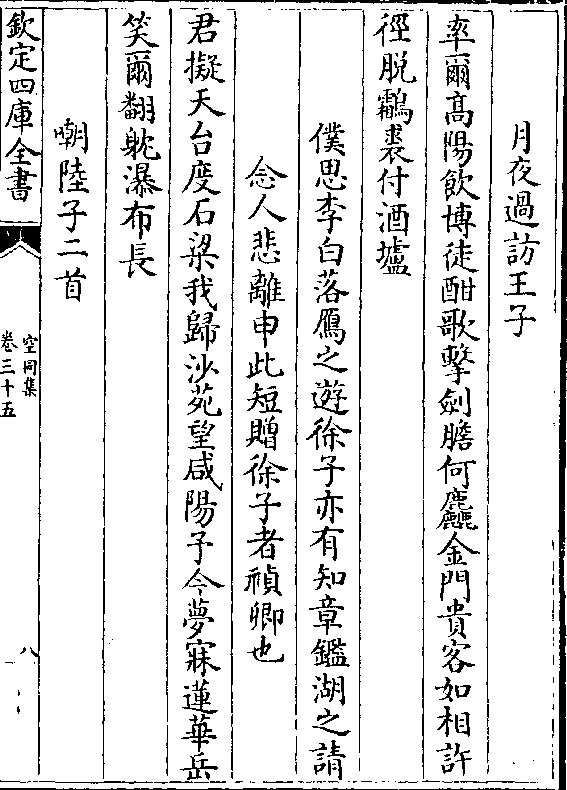 月夜過訪王子
率爾高陽飲博徒酣歌擊劍膽何麤金門貴客如相許
徑脱鸘裘付酒壚
僕思李白落鴈之遊徐子亦有知章鑑湖之請
念人悲離申此短贈徐子者禎卿也
君擬天台度石梁我歸沙苑望咸陽予今夢寐蓮華岳
笑爾翻躭瀑布長
嘲陸子二首
欽定四庫全書
空同集
卷三十五
八